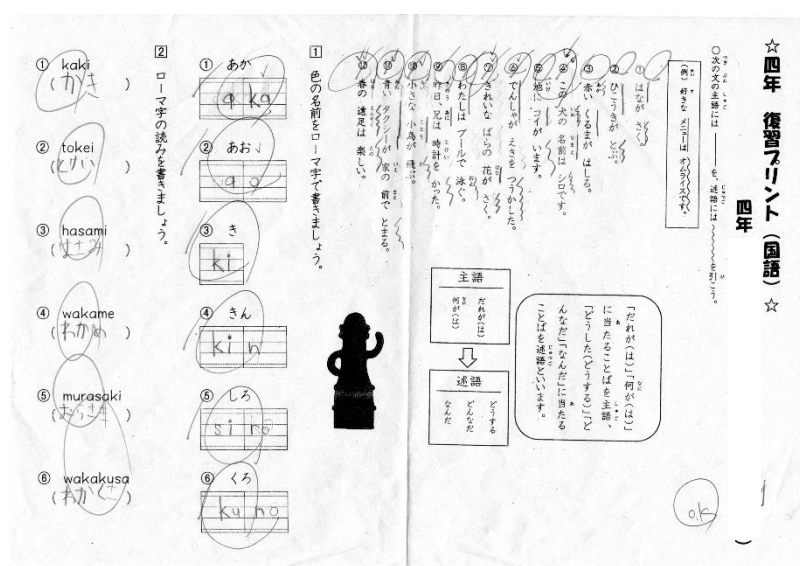 ☆四年 復習プリント(国語)☆
四年
)
○次の文の主語には───を、述語には〜〜〜を引こう。
(例) 好きな メニューは オムライスです。
① はなが さく。
② ひこうきが とぶ。
③ 赤い くるまが はしる。
④ この 犬の 名前は シロです。
⑤ 池に コイが います。
⑥ でんしゃが えきを つうかした。
⑦ きれいな ばらの 花が さく。
⑧ わたしは プールで 泳ぐ。
⑨ 昨日、兄は 時計を かった。
⑩ 小さな 小鳥が 飛ぶ。
⑪ 青い タクシーが 家の 前で とまる。
⑫ 春の 遠足は 楽しい。
「だれが(は)」「何が(は)」
に当たることばを主語、
「どうした(どうする)」「ど
んなだ」「なんだ」に当たる
ことばを述語といいます。
主語
だれが(は)
何が(は)
述語
どうする
どんなだ
なんだ
o.k
1 色の名前をローマ字で書きましょう。
① あか
a ka
② あお
a o
③ き
ki
④ きん
ki n
⑤ しろ
si ro
⑥ くろ
ku ro
2 ローマ字の読みを書きましょう。
① kaki
(かき)
② tokei
(とけい)
③ hasami
(はさみ)
④ wakame
(わかめ)
⑤ murasaki
(むらさき)
⑥ wakakusa
(わかくさ)